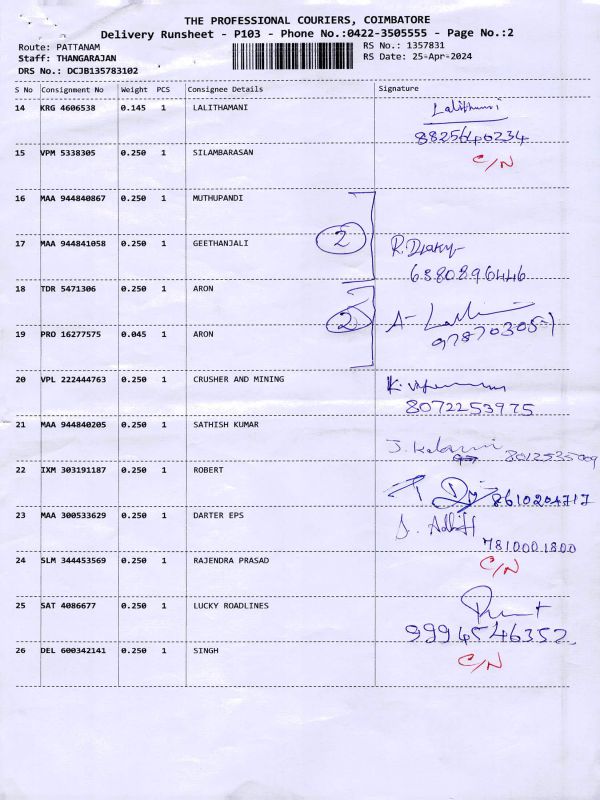 THE PROFESSIONAL COURIERS, COIMBATORE
Delivery Runsheet - P103 - Phone No.:0422-3505555 - Page No.:2
Route: PATTANAM
RS No.: 1357831
Staff: THANGARAJAN
RS Date: 25-Apr-2024
DRS No.: DCJB135783102
S No Consignment No Weight PCS Consignee Details Signature
14 KRG 4606538 0.145 1 LALITHAMANI
8825640234
15 VPM 5338305 0.250 1 SILAMBARASAN C/N
16 MAA 944840867 0.250 1 MUTHUPANDI
17 MAA 944841058 0.250 1 GEETHANJALI 2 R.
6380896446
18 TDR 5471306 0.250 1 ARON
2 A-
19 PRO 16277575 0.045 1 ARON
20 VPL 222444763 0.250 1 CRUSHER AND MINING K.
8072253975
21 MAA 944840205 0.250 1 SATHISH KUMAR
J. 8012535009
22 IXM 303191187 0.250 1 ROBERT
8610204717
23 MAA 300533629 0.250 1 DARTER EPS
7810001800
24 SLM 344453569 0.250 1 RAJENDRA PRASAD C/N
25 SAT 4086677 0.250 1 LUCKY ROADLINES
9994546352
26 DEL 600342141 0.250 1 SINGH C/N